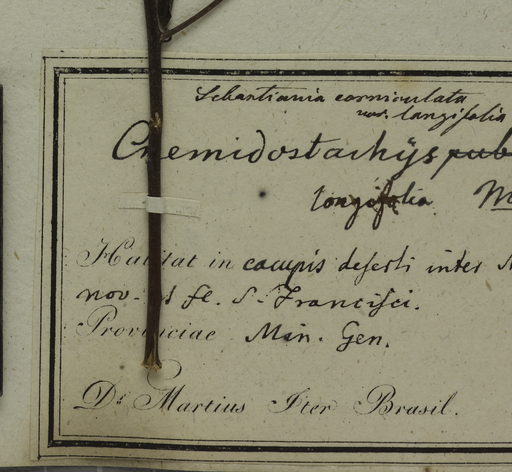 Sebastiania corniculata
var. longifolia
Cnemidostachys pub
longifolia. M
Habitat in campis deserti inter
nov. et fl. S. Francisci.
Provinciae Min. Gen.
Dr. Martius Iter Brasil.